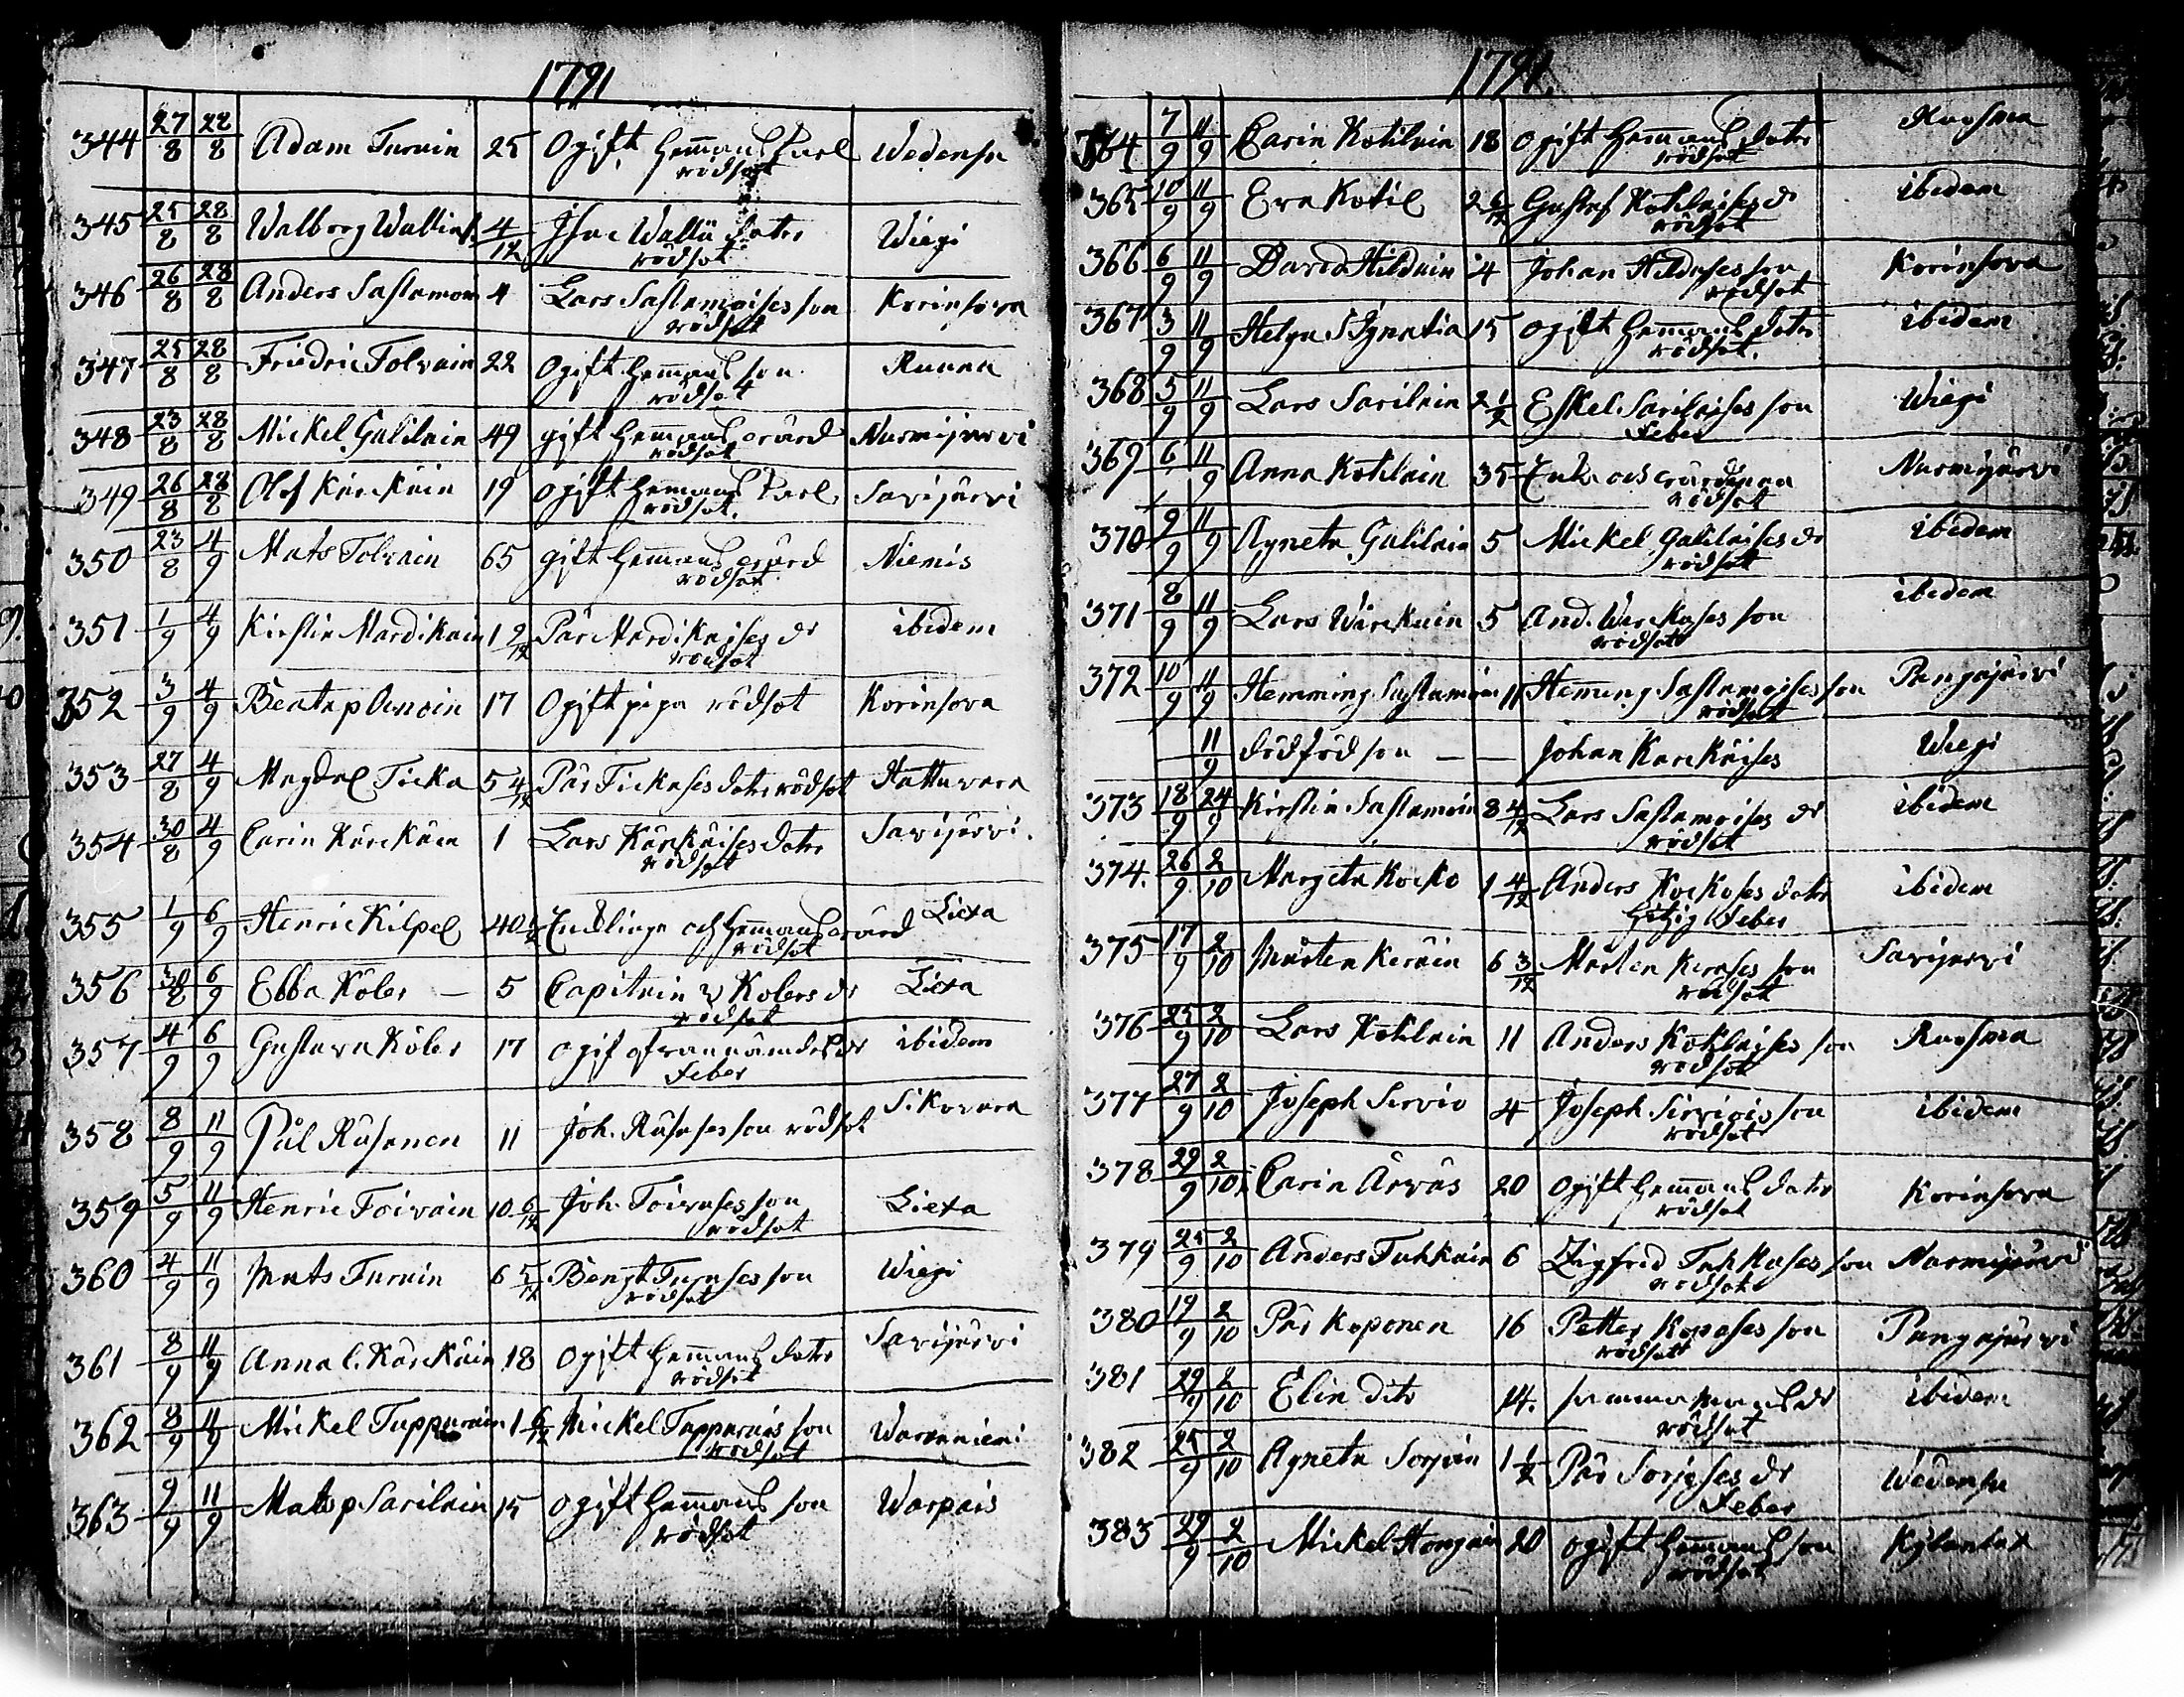 1791
344 27/8 28/8 Adam Turuin 25 Ogift hemmans karl Wedensu
rödsot
345 25/8 28/8 Walborg Wallius 4/12 Isac Wallii dotr Wiegi
rödsot
346 26/8 28/8 Anders Sastamoin 4 Lars Sastamoises son Korinsova
rödsot
347 25/8 28/8 Friedric Tolvain 22 Ogift hemmans son Ruuna
rödsot
348 23/8 28/8 Mickel Galilain 49 gift hemmans Nurmijärvi
rödsot
349 26/8 28/8 Olof Kärckäin 19 ogift hemmans karl Savijärvi
rödsot.
350 23/8 4/9 Mats Tolvain 65 gift hemmans Niemis
rödsot
351 1/9 4/9 Kirstin Mardikain 1 2/12 Pär Mardikaises dr ibidem
rödsot
352 3/9 4/9 Beata p 17 Ogift piga rödsot Korinsova
353 27/8 4/9 Magdal Ticka 5 4/12 Pär Tickases dotr rödsot Hattuvara
354 30/8 4/9 Carin Kärckäin 1 Lars Kärckäises dotr Savijärvi.
rödsot
355 1/9 6/9 Henric Kilpel 40 och hemmans Liexa
rödsot
356 30/8 6/9 Ebba Köler — 5 Capitain v Kölers dr Liexa
rödsot
357 4/9 6/9 Gustava Köler 17 ogif ofvannämdes dr ibidem
Feber
358 8/9 11/9 Pål Räsänen 11 Joh. Räsäses son rödsot Sikovara
359 5/9 11/9 Henric Toivain 10 6/12 Joh. Toivases son Liexa
rödsot
360 4/9 11/9 Mats Turuin 6 5/12 Bengt Turuses son Wiegi
rödsot
361 8/9 11/9 Anna C. Kärckäin 18 ogift hemmans dotr Savijärvi
rödsot
362 8/9 11/9 Mickel Tuppurain 1 6/12 Mickel Tuppurais son Waraniemi
rödsot
363 9/9 11/9 Mats p Sarilain 15 ogift hemmans son Warpais
rödsot
1791.
364 7/9 11/9 Carin Kotilain 18 ogift hemmans dotr Ruosma
rödsot
365 10/9 11/9 Eva Kotil 2 6/12 Gustaf Kotilaises dr ibidem
rödsot
366 6/9 11/9 David Hilduin 4 Johan Hilduses son Korinsova
rödsot
367 3/9 11/9 Helga S Ignatia 15 ogift hemmans dotr ibidem
rödsot.
368 5/9 11/9 Lars Sarilain 2 1/2 Eskel Sarilaises son Wiegi
Feber
369 6 11/9 Anna Kotilain 35 Enka och Nurmijärvi
rödsot
370 9/9 11/9 Agneta Galilain 5 Mickel Galilaises dr ibidem
rödsot
371 8/9 11/9 Lars Wirckuin 5 And. Wirckuses son ibidem
rödsot
372 10/9 11/9 Hemming Sastamoin 11 Heming Sastamoises son Pangajärvi
rödsot
11/9 dödfödson — — Johan Karckäises Wiegi
373 18/9 24/9 Kirstin Sastamoin 8 4/12 Lars Sastamoises dr ibidem
rödsot
374. 26/9 2/10 Margeta Kocko 1 4/12 Anders Kockoses dotr ibidem
hitzig Feber
375 17/9 2/10 Mårten Keräin 6 3/12 Mårten Keräses son Savijärvi
rödsot
376 25/9 2/10 Lars Kotilain 11 Anders Kotilaises son Ruosma
rödsot
377 27/9 2/10 Joseph Sirviö 4 Joseph Sirviöis son ibidem
rödsot
378 29/9 2/10 Carin Ärväs 20 ogift hemmans dotr Korinsova
rödsot
379 25/9 2/10 Anders Tuhkain 6 Zigfrid Tuhkases son Nurmijärvi
rödsot
380 19/9 2/10 Pär Koponen 16 Petter Koposes son Pangajärvi
rödsot
381 29/9 2/10 Elin dito 14. samma mans dr ibidem
rödsot
382 25/9 2/10 Agneta Sorjoin 1 1/2 Pär Sorjoses dr Wedensu
Feber
383 29/9 2/10 Mickel Hongain 20 ogift hemmans son Kylanlax
rödsot